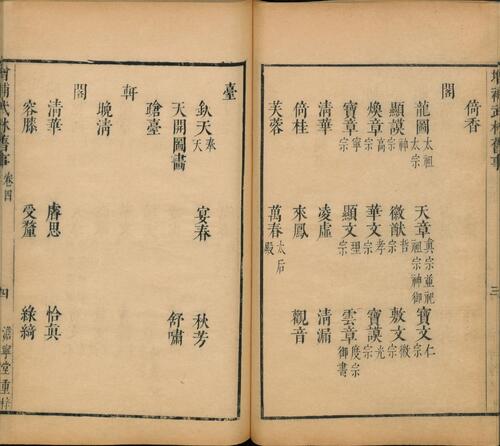 增補武林舊事
三
倚香
閣
龍圖 太祖太宗 天章 真宗並祀祖宗神御 寶文 仁宗
顯謨 神宗 徽猷 哲宗 敷文 徽宗
煥章 高宗 華文 孝宗 寶謨 光宗
寶章 寧宗 顯文 理宗 雲章 度宗御書
清華 凌虛 清漏
倚桂 來鳳 觀音
芙蓉 萬春 太后殿
臺
欽天 奉天 宴春 秋芳
天開圖畫 舒嘯
臺
軒
晚清
閣
清華 睿思 怡真
容膝 受釐 綠綺
增補武林舊事 卷四 四 澹寧堂重梓